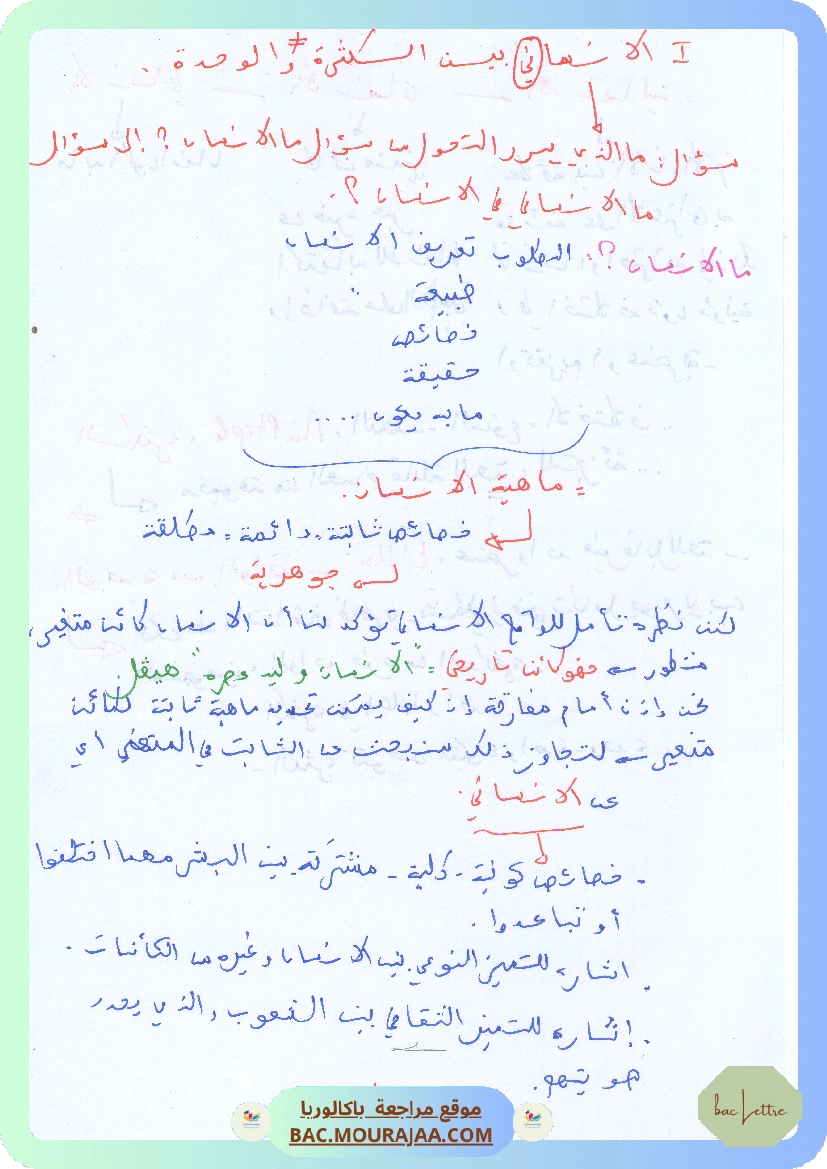 I الانساني بين الكثرة ≠ والوحدة.
سؤال: ما الذي يبرر التحول من سؤال ما الانسان؟ إلى سؤال
ما الانساني في الانسان؟.
ما الانسان؟: المطلوب تعريف الانسان
طبيعة :
خصائص
حقيقة
ما به يكون ....
= ماهية الانسان.
خصائص ثابتة، دائمة، مطلقة
جوهرية
لكن نظرة تأمل للواقع الانساني تؤكد لنا أن الانسان كائن متغير،
متطور فهو كائن تاريخي = "الانسان وليد عصره" هيقل
نحن إذن أمام مفارقة إذ كيف يمكن تحديد ماهية ثابتة لكائن
متغير لتجاوز ذلك سنبحث عن الثابت في المتغير أي
عن الانساني.
- خصائص كونية - كلية - مشتركة بين البشر مهما اختلفوا
أو تباعدوا.
. اشارة للتميز النوعي بين الانسان وغيره من الكائنات.
. إشارة للتميز الثقافي بين الشعوب والذي يحدد
هويتهم.
bac Lettre
موقع مراجعة باكالوريا
BAC.MOURAJAA.COM